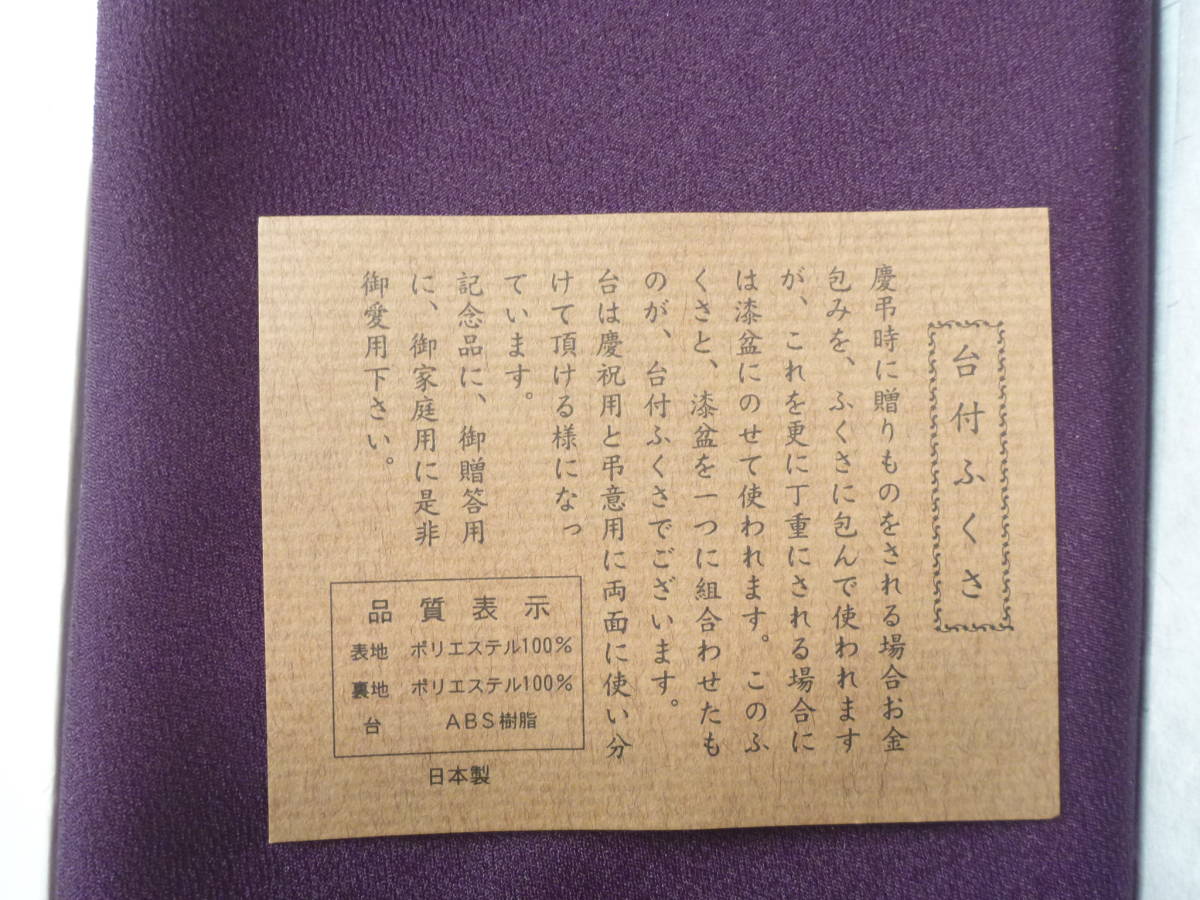 台付ふくさ
慶弔時に贈りものをされる場合お金
包みを、ふくさに包んで使われます
が、これを更に丁重にされる場合に
は漆盆にのせて使われます。このふ
くさと、漆盆を一つに組合わせたも
のが、台付ふくさでございます。
台は慶祝用と弔意用に両面に使い分
けて頂ける様になっ
ています。
記念品に、御贈答用
に、御家庭用に是非
御愛用下さい。
品質表示
表地 ポリエステル100%
裏地 ポリエステル100%
台 ABS樹脂
日本製